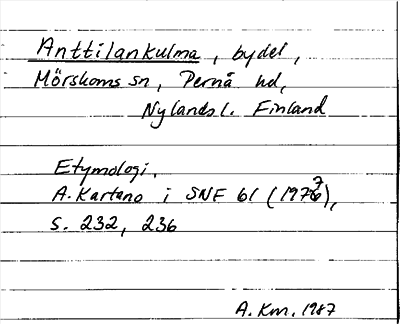 Anttilankulma, bydel,
Mörskoms sn, Pernå hd,
Nylands l. Finland
Etymologi.
A. Kartano i SNF 61 (1977),
s. 232, 236
A. Km. 1987